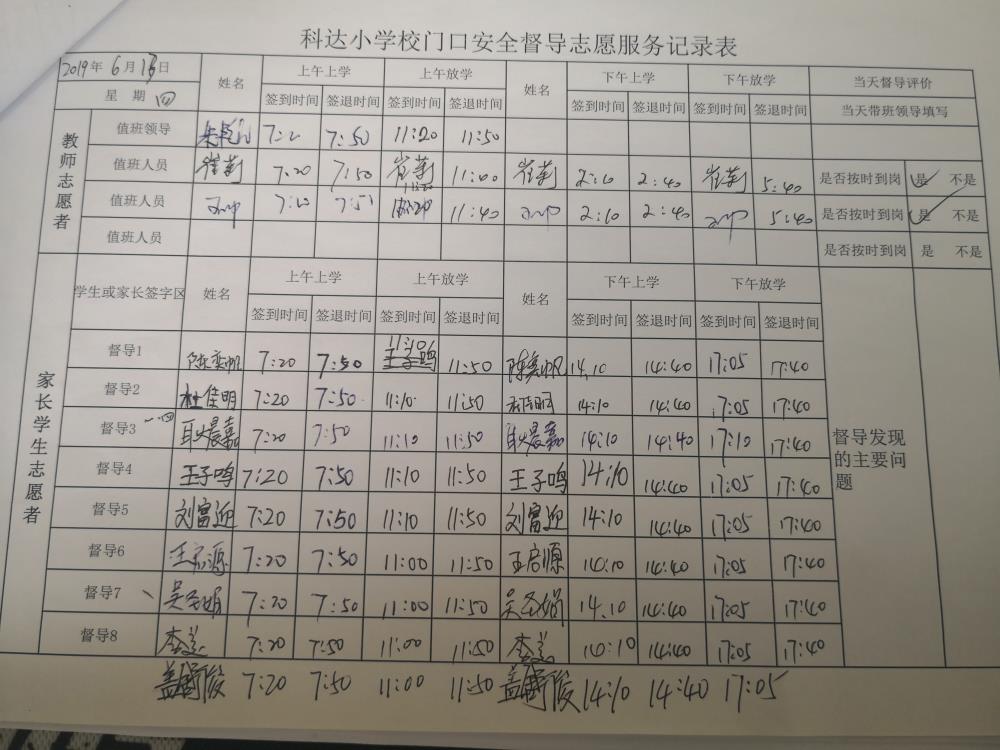 科达小学校门口安全督导志愿服务记录表
2019年6月13日 姓名 上午上学 上午放学 姓名 下午上学 下午放学 当天督导评价
星 期 四 签到时间 签退时间 签到时间 签退时间 签到时间 签退时间 签到时间 签退时间 当天带班领导填写
教师志愿者
值班领导 7:50 11:20 11:50
值班人员 崔莉 7:20 7:50 崔莉 11:20 11:00 崔莉 2:10 2:40 崔莉 5:40 是否按时到岗 是 不是
值班人员 11:40 2:10 2:40 5:40 是否按时到岗 是 不是
值班人员 是否按时到岗 是 不是
家长学生志愿者
学生或家长签字区 姓名 上午上学 上午放学 姓名 下午上学 下午放学
签到时间 签退时间 签到时间 签退时间 签到时间 签退时间 签到时间 签退时间
督导1 陈奕帆 7:20 7:50 11:10 王子鸣 11:50 陈奕帆 14:10 14:40 17:05 17:40
督导2 杜佳明 7:20 7:50 11:10 11:50 14:10 14:40 17:05 17:40
督导3 一四 耿晨嘉 7:20 7:50 11:10 11:50 耿晨嘉 14:10 14:40 17:10 17:40
督导4 王子鸣 7:20 7:50 11:10 11:50 王子鸣 14:10 14:40 17:05 17:40
督导5 刘富迎 7:20 7:50 11:10 11:50 刘富迎 14:10 14:40 17:05 17:40
督导6 王启源 7:20 7:50 11:00 11:50 王启源 14:40 17:05 17:40
督导7 吴圣娟 7:20 7:50 11:00 11:50 吴圣娟 14.10 14:40 17:05 17:40
督导8 7:20 7:50 11:00 11:50 14:40 17:05 17:40
督导发现的主要问题
7:20 7:50 11:00 11:50 14:10 14:40 17:05